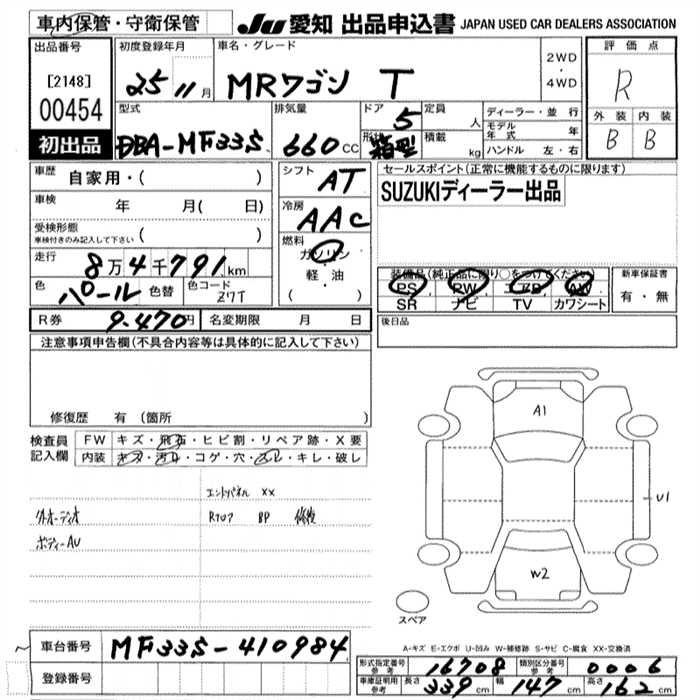 車内保管・守衛保管
JU 愛知 出品申込書 JAPAN USED CAR DEALERS ASSOCIATION
出品番号
[2148]
00454
初出品
初度登録年月
25 11月
車名・グレード
MRワゴン T
2WD
・
4WD
評価点
R
外装 内装
B B
型式
DBA-MF33S
排気量
660cc
ドア
5
形状
箱型
定員
人
積載
kg
ディーラー・並行
モデル年式 年
ハンドル 左・右
車歴
自家用・( )
車検
年 月( 日)
受検形態
車検付きのみ記入して下さい ( )
走行
8万4千791km
色
パール 色替
色コード
Z7T
シフト
AT
冷房
AAC
燃料
ガソリン
軽・油
( )
セールスポイント(正常に機能するものに限ります)
SUZUKIディーラー出品
装備品(純正品に限り○をつけてください)
PS PW エアB AW
SR ナビ TV カワシート
新車保証書
有・無
R券 9,470円
名変期限 月 日
後日品
注意事項申告欄(不具合内容等は具体的に記入して下さい)
修復歴 有(箇所 )
検査員記入欄
FW キズ・飛石・ヒビ割・リペア跡・X要
内装 キズ・汚れ・コゲ・穴・スレ・キレ・破レ
XX
外オーディオ
Rフロア BP 修復
ボディーAU
A1
U1
W2
スペア
A-キズ E-エクボ U-凹み W-補修跡 S-サビ C-腐食 XX-交換済
車台番号 MF33S-410984
登録番号
形式指定番号参考 16708
類別区分番号参考 0006
車庫証明用参考 長さ 339cm 幅 147cm 高さ 162cm